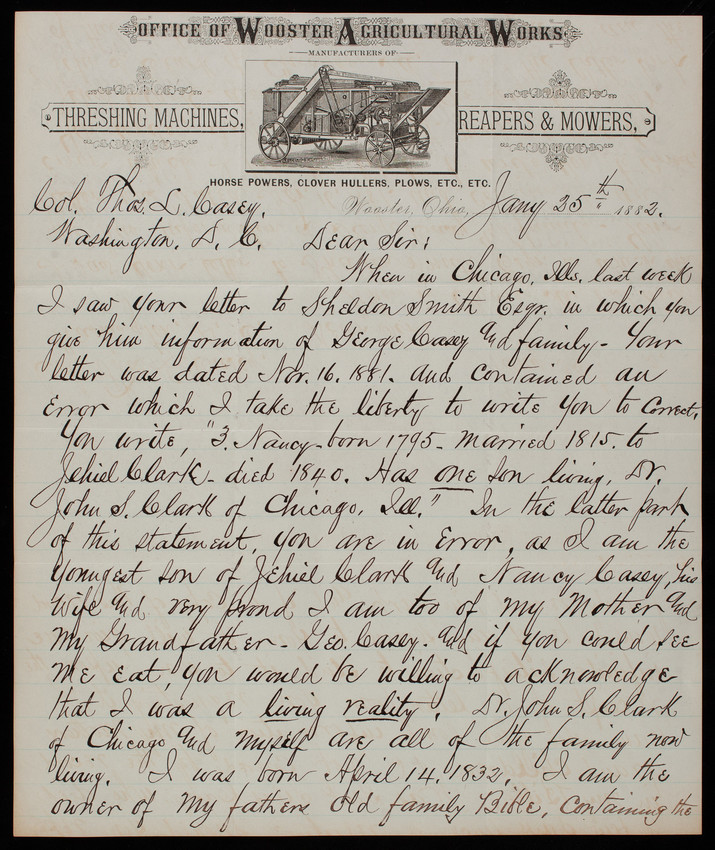 OFFICE OF WOOSTER AGRICULTURAL WORKS
MANUFACTURERS OF
THRESHING MACHINES,
REAPERS & MOWERS,
HORSE POWERS, CLOVER HULLERS, PLOWS, ETC., ETC.
Col. Thos. L. Casey,
Wooster, Ohio, Jany 25th 1882.
Washington. D. C. Dear Sir:
When in Chicago, Ills. last week
I saw your letter to Sheldon Smith Esqr. in which you
give him information of George Casey and family - Your
letter was dated Nov. 16. 1881. and contained an
Error which I take the liberty to write you to correct.
You write, "3. Nancy - born 1795 - married 1815. to
Jehiel Clark - died 1840. Has one son living, Dr.
John S. Clark of Chicago, Ill." In the latter part
of this statement, you are in Error, as I am the
youngest son of Jehiel Clark and Nancy Casey, his
wife and very proud I am too of my Mother and
my Grandfather - Geo. Casey. And if you could see
me eat, you would be willing to acknowledge
that I was a living reality. Dr. John S. Clark
of Chicago and myself are all of the family now
living. I was born April 14. 1832. I am the
owner of my fathers old family Bible, containing the